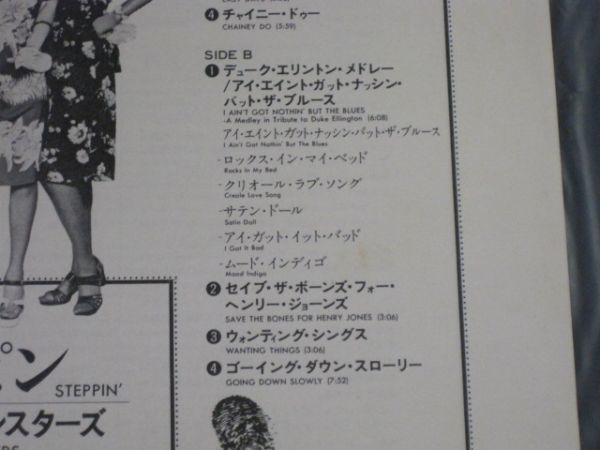 ❹ チャイニー・ドゥー
CHAINEY DO (3:59)
SIDE B
❶ デューク・エリントン・メドレー
/アイ・エイント・ガット・ナッシン・
バット・ザ・ブルース
I AIN'T GOT NOTHIN' BUT THE BLUES
-A Medley in Tribute to Duke Ellington (6:08)
アイ・エイント・ガット・ナッシン・バット・ザ・ブルース
I Ain't Got Nothin' But The Blues
-ロックス・イン・マイ・ベッド
Rocks In My Bed
-クリオール・ラブ・ソング
Creole Love Song
-サテン・ドール
Satin Doll
-アイ・ガット・イット・バッド
I Got It Bad
-ムード・インディゴ
Mood Indigo
❷ セイブ・ザ・ボーンズ・フォー・
ヘンリー・ジョーンズ
SAVE THE BONES FOR HENRY JONES (3:06)
❸ ウォンティング・シングス
WANTING THINGS (3:06)
❹ ゴーイング・ダウン・スローリー
GOING DOWN SLOWLY (7:52)
ピン
STEPPIN'
ンスターズ